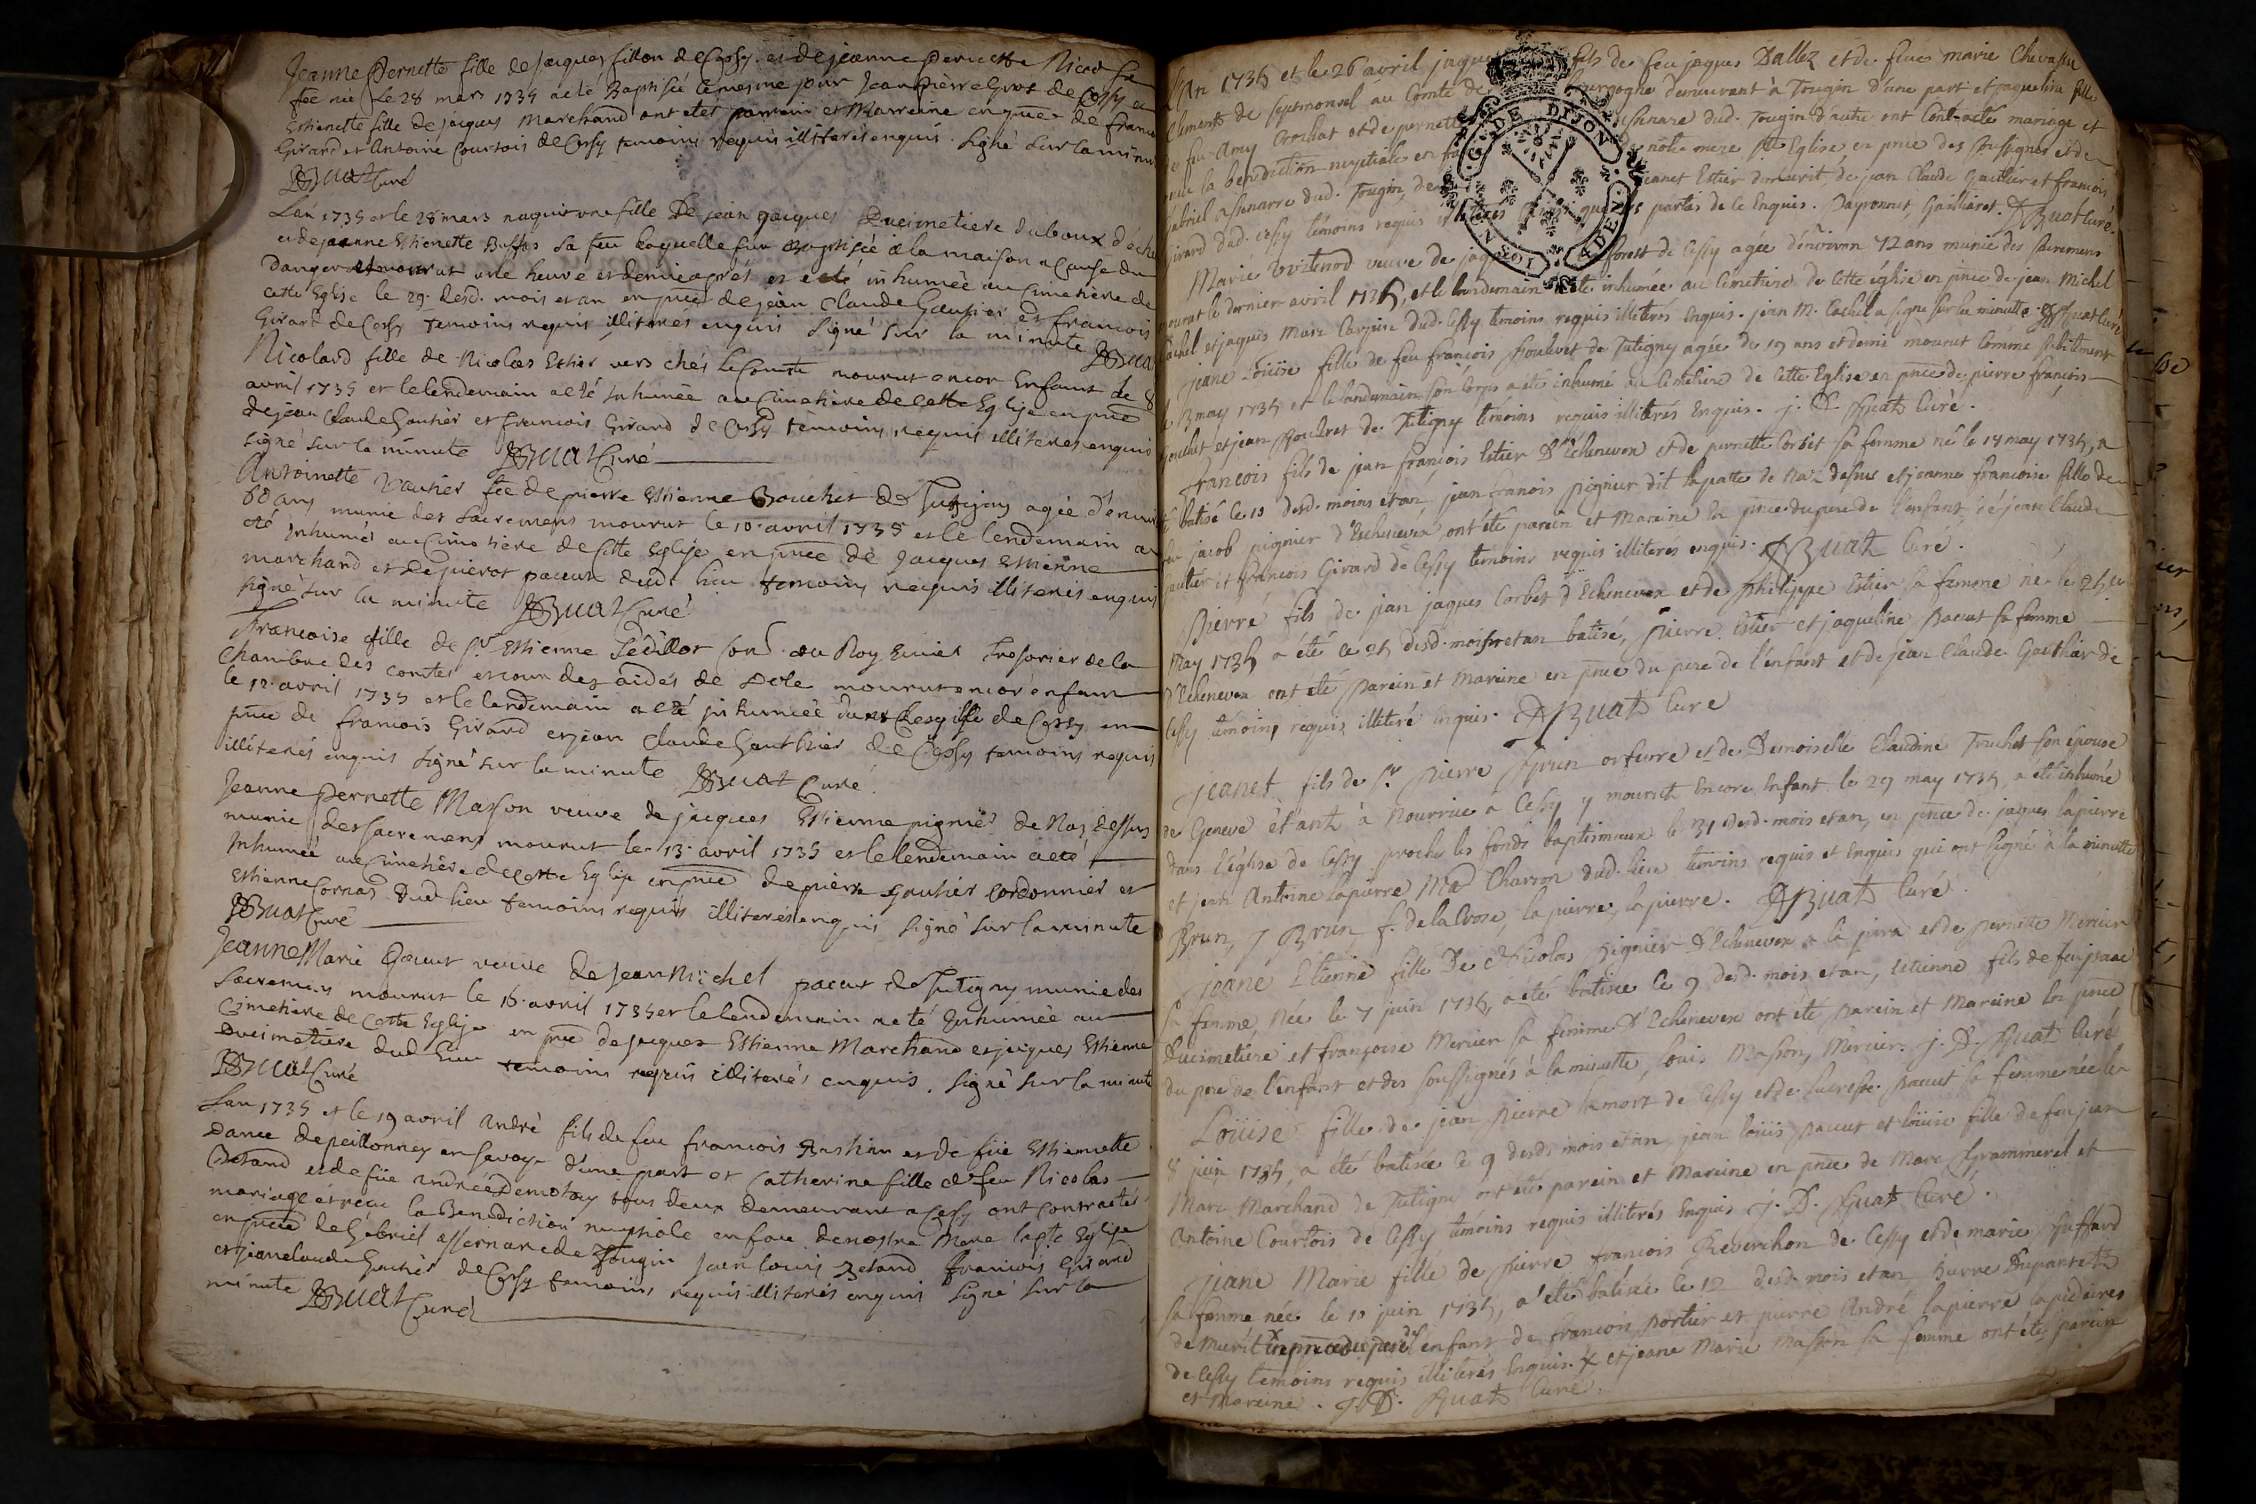 Jeanne Pernette fille de jacques fillon de Cessy et de jeanne Pernette Nicod sa
fẽe née le 28 mars 1735 a eté Baptisée le mesme jour Jean Pierre Grot de Cessy et
Estienette fille de jacques Marchand ont etés parrain et Marraine en pñce de francois
Girard et Antoine Courtois de Cessy temoins requis illiterés enquis. Signé sur la minute
JDBuat Curé
Lan 1735 et le 28 mars naquit une fille De jean jacques Ducimetiere duboux d'éche
et de jeanne Estienette Buffas sa feu laquelle fut Baptisée a la maison a Cause du
danger et mourut une heure et demie aprés et a eté inhumée au Cimetiere de
cette Eglise le 29. desd. mois et an en pñce de jean Claude Gautier et francois
Girard de Cessy temoins requis illiterés enquis Signé sur la minute JDBua
Nicolard fille de Nicolas Estier vers chés le Comte mourut encor Enfant le 8
avril 1735 et le lendemain a eté Inhumée au Cimetiere de cette Eglise en pñce
de jean Claude Gautier et francois Girard de Cessy temoins requis illiteres enquis
signé sur la minute JDBuat Curé
Antoinette Vautier fẽe de pierre Estienne Bouchet de Tutigny agée d'environ
60 ans munie des Sacremens mourut le 10. avril 1735 et le lendemain a
eté Inhumée au Cimetiere de cette Eglise en pñce de Jacques Estienne
marchand et de pierot pacut dud. lieu temoins requis illiterés enquis
signé sur la minute JDBuat Curé
Francoise fille de Sr. Estienne Sedillot Cond. du Roy Trésorier de la
Chambre des comtes et cour des aides de Dole mourut encor enfant
le 12. avril 1735 et le lendemain a eté inhumée dans l'eglise de Cessy en
pñce de francois Girard et jean Claude Gauthier de Cessy temoins requis
illiterés enquis signé sur la minute JDBuat Curé.
Jeanne Pernette Masson veuve de jacques Estienne pignier de Naz dessus
munie des sacremens mourut le 13. avril 1735 et le lendemain a eté
Inhumée au Cimetiere de cette Eglise en pñce de pierre gautier Cordonnier et
Estienne Cornas Dud. lieu temoins requis illiterés enquis Signé sur la minute
JDBuat Curé
Jeanne Marie Pacut veuve de jean Michel pacut de Tutigny munie des
Sacremens mourut le 16. avril 1735 et le lendemain a eté Inhumée au
Cimetiere de Cette Eglise en pñce de jacques Estienne Marchand et jacques Estienne
Ducimetiere dud. lieu temoins requis illiterés enquis. Signé sur la minute
JDBuat Curé
Lan 1735 et le 19 avril André fils de feu francois Bastian et de füe Estienette
Dance de peillonnex en Savoye d'une part et Catherine fille de feu Nicolas
Betand et de füe Andrée Demotay tous deux demeurant a Cessy ont contractés
mariage et reçu la Benediction nuptiale en face de nostre Mere la Ste Eglise
en pñce de Gabriel assernare de Tougin Jean louis Betand francois Girard
et jeanclaude Gautier de Cessy temoins requis illiterés enquis Signé sur la
minute JDBuat Curé
L'an 1735 et le 26 avril jaques fils de feu jaques Dallez et de füe marie Chevassu
Clement de Septmoncel au Comté de Bourgogne demeurant à Tougin d'une part et jaqueline fille
de feu Amy Crochat et de pernette dud. Tougin d'autre ont Contracté mariage et
reçu la benediction nuptiale en fa notre mere Ste Eglise en pñce des soussignés et de
Gabriel assenarre dud. Tougin, de janet Estier de jean Claude Gautier et francois
Girard dud. Cessy témoins requis illiterés que les parties de ce Enquis. Gaillard. JDBuat Curé.
Marie veuve de jaques forest de Cessy agee d'environ 72 ans munie des Sacremens
mourut le dernier avril 1735, et le lendemain eté inhumée au Cimetiere de cette église en pñce de jean Michel
Cachel et jaques Marc dud. Cessy témoins requis illiterés Enquis. jean M. Cachel a signé sur la minute. JDBuat Curé
Jeane Loüise fille de feu françois Poulret de Tutigny agée de 19 ans et demie mourut comme subitement
le 13 may 1735 et le landemain son corps a eté inhumé au Cimetiere de Cette Eglise en pñce de pierre françois
Bouchet et jean Poulret de Tutigny témoins requis illiterés Enquis. J. D. Buat Curé.
François fils de jean françois Estier d'Echenevex et de pernette Corbet sa femme né le 14 may 1735, a
été batisé le 15 desd. mois et an, jean francois pignier dit lapatte de Naz dessus et jeanne francoise fille de
feu jacob pignier d'Echenevex ont été parein et Mareine en pñce du pere de l'enfant, de jean Claude
Gautier et francois Girard de Cessy temoins requis illiterés enquis. JDBuat Curé.
Pierre fils de jean jaques Corbet d'Echenevex et de philippe Estier sa femme né le 24
may 1735 a été le 25 desd. mois et an batisé, Pierre Estier et jaqueline Pacut sa femme
d'Echenevex ont été parein et mareine en pñce du pere de l'enfant et de jean Claude Gauthier de
Cessy témoins requis illiteré Enquis. JDBuat Curé
Jeanet fils de Sr. Pierre Brun orfevre et de Demoiselle Claudine Truchet son épouse
de Geneve étant à Nourrice a Cessy y mourut Encore Enfant le 29 may 1735, a été inhumé
dans l'église de Cessy proche les fonds baptismaux le 31 desd. mois et an, en pñce de jaques lapierre
et jean Antoine lapierre Md Charron dud. lieu témoins requis et Enquis qui ont signé à la minutte
Brun, J Brun f. de la Croze, lapierre, lapierre. JDBuat Curé.
Jeane Etienne fille De Nicolas Pignier d'Echenevex a la jura et de pernette Mercier
sa femme, née le 7 juin 1735, a été batisée le 9 desd. mois et an, Etienne fils de feu jsaac
Ducimetiere et françoise Mercier sa femme d'Echenevex ont été parein et Mareine en pñce
du pere de l'enfant et des soussignés à la minutte, louis Masson, Mercier. J. D. Buat Curé
Loüise fille de jean Pierre lamort de Cessy et de lucresse Pacut sa femme née le
8 juin 1735, a été batisée le 9 desd. mois et an jean loüis pacut et loüise fille de feu jean
Marc Marchand de Tutigni ont été parein et Mareine en pñce de Marc Grammerel et
Antoine Courtois de Cessy témoins requis illiterés Enquis J. D. Buat Curé.
Jeane Marie fille de Pierre francois Reverchon de Cessy et de marie Huffard
sa femme née le 10 juin 1735, a été batisée le 12 desd. mois et an pierre Dupartet
de en pñce du pere de l'enfant de francois portier et pierre André lapierre lapidaires
de Cessy temoins requis illiterés Enquis. x et jeane Marie Masson sa femme ont été parein
et Mareine. J. D. Buat Curé.
G. DE DIJON